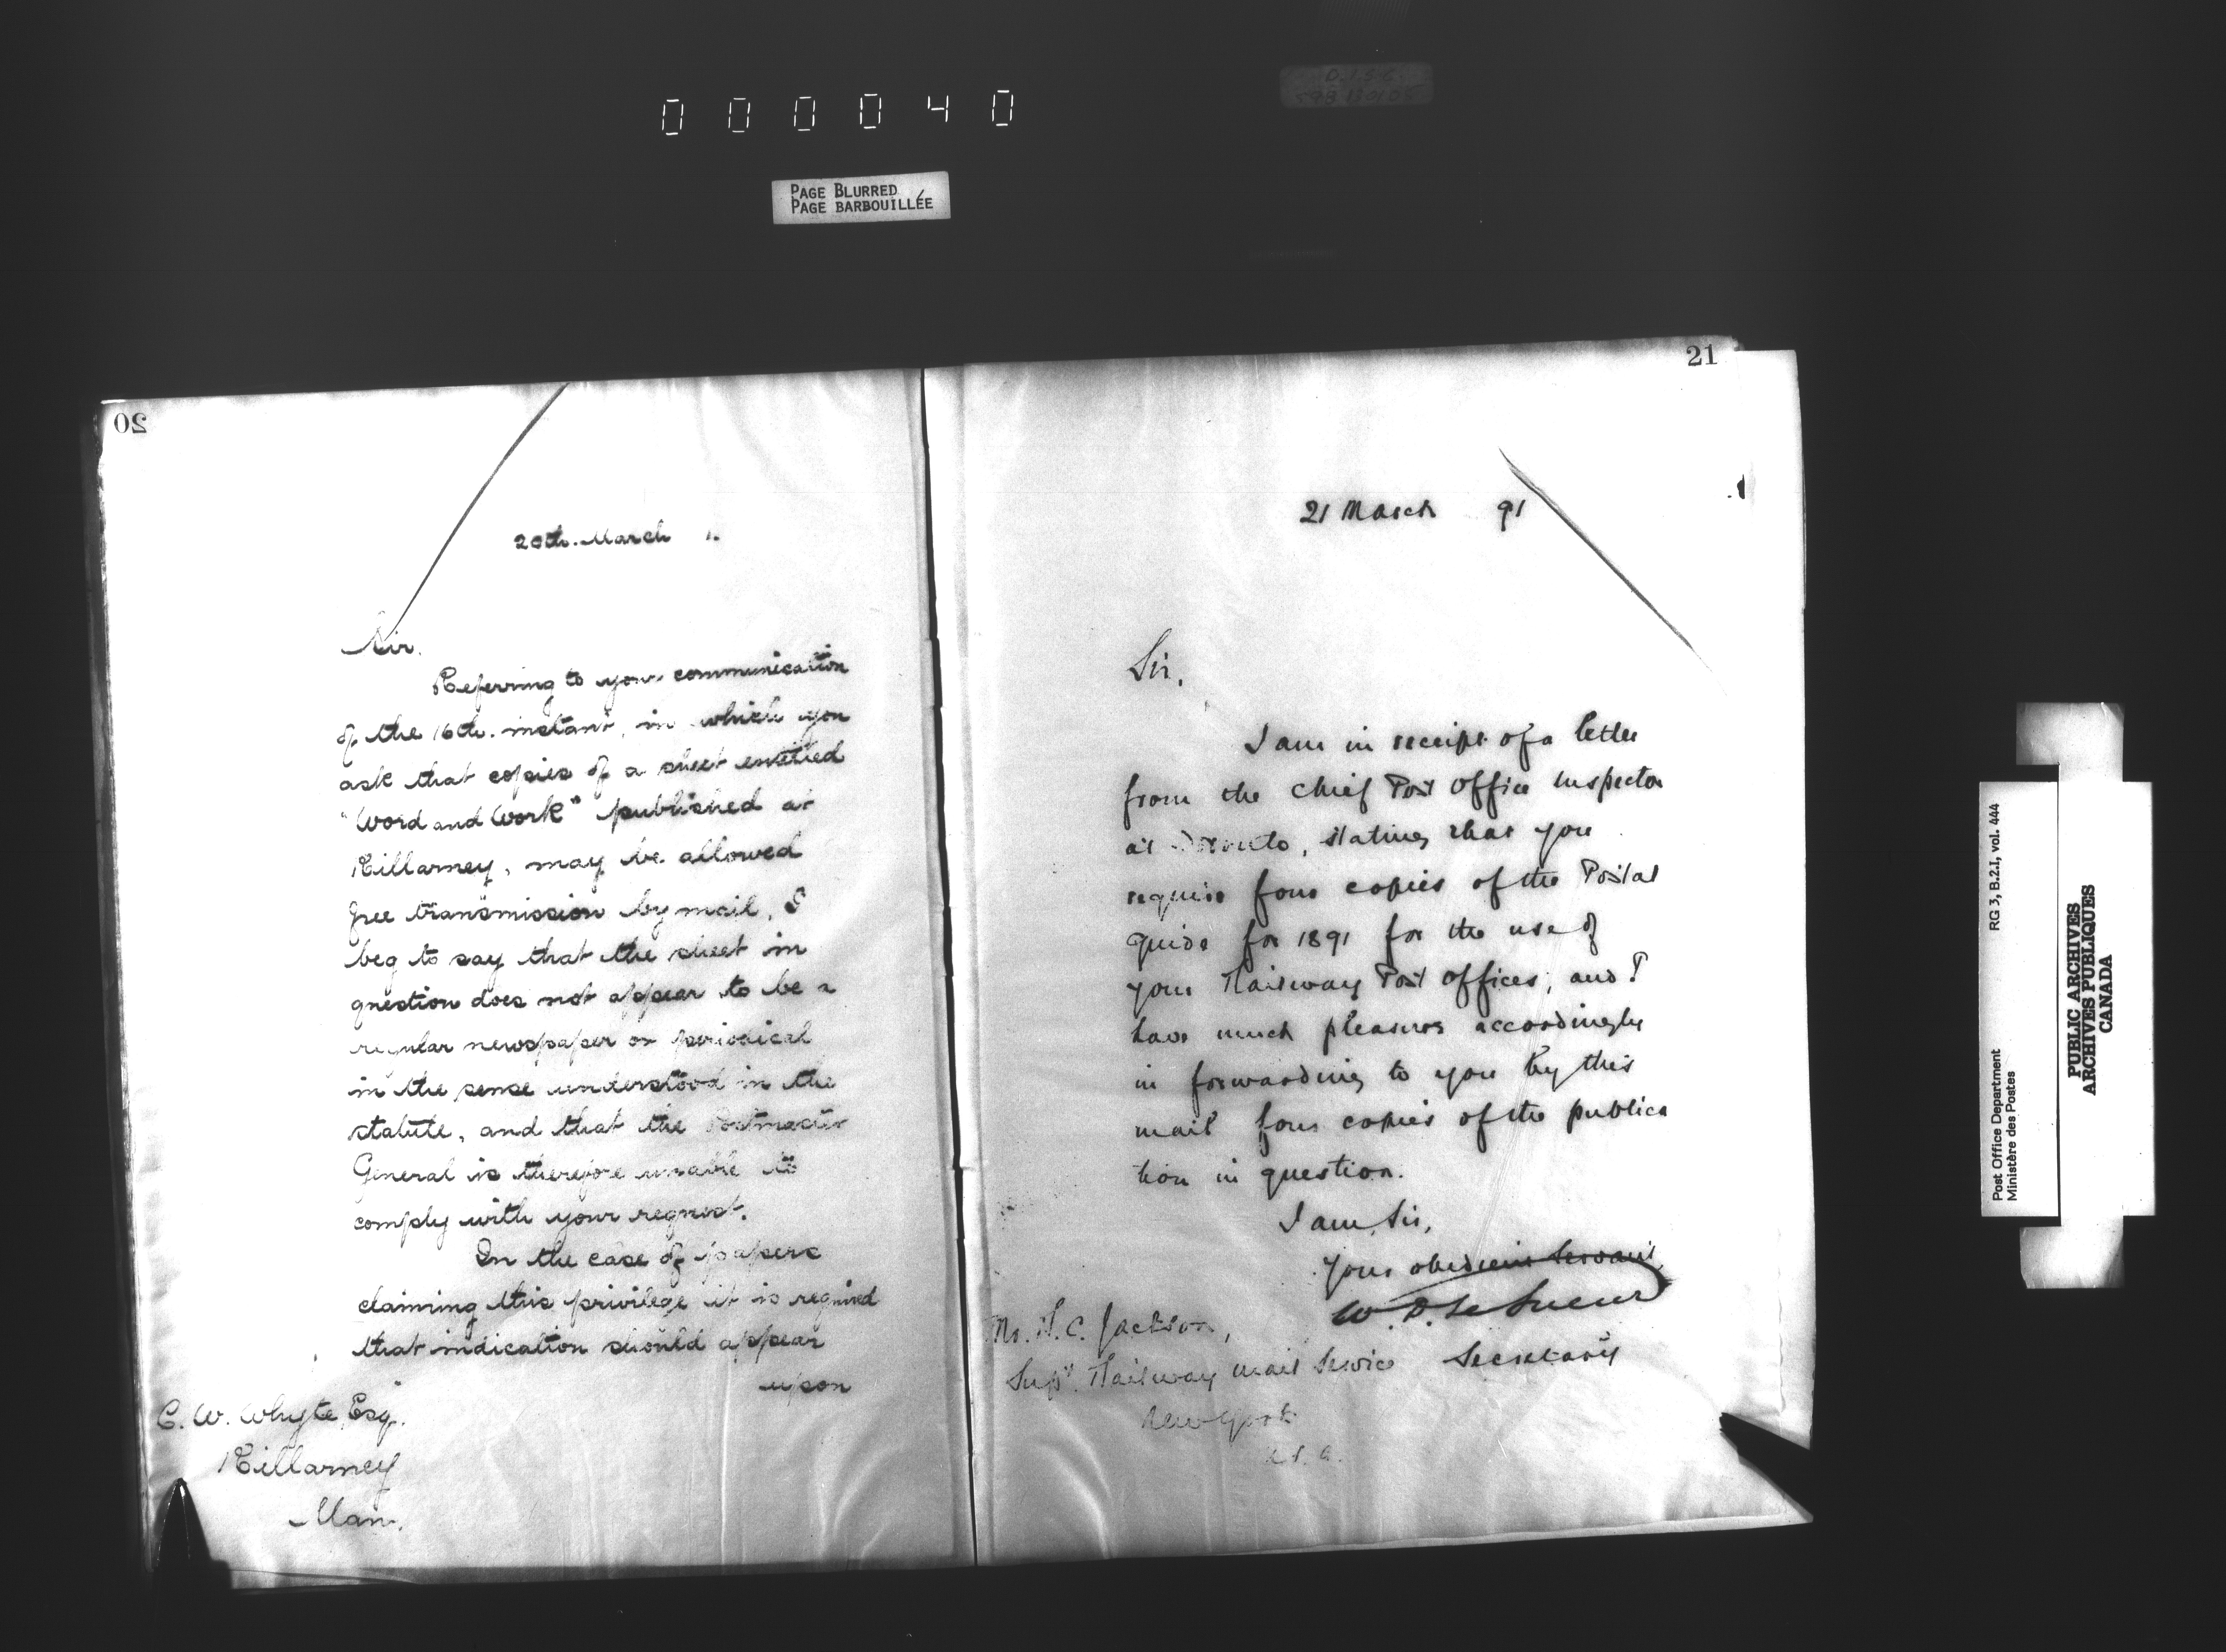 000040
PAGE BLURRED
PAGE BARBOUILLÉE
20
20th. March 1.
Sir.
Referring to your communication
of the 16th. instant, in which you
ask that copies of a sheet entitled
"Word and Work" published at
Killarney, may be allowed
free transmission by mail, I
beg to say that the sheet in
question does not appear to be a
regular newspaper or periodical
in the sense understood in the
statute, and that the Postmaster
General is therefore unable to
comply with your request.
In the case of papers
claiming this privilege it is required
that indication should appear
upon
C. W. Whyte, Esq.
Killarney
Man.
21
21 March 91
Sir,
I am in receipt of a letter
from the Chief Post Office Inspector
at Toronto, stating that you
require four copies of the Postal
Guide for 1891 for the use of
your Railway Post Offices, and I
have much pleasure accordingly
in forwarding to you by this
mail four copies of the publica
tion in question.
I am, Sir,
Your obedient Servant
W. D. LeSueur
Secretary
Mr. C. Jackson,
Supt. Railway Mail Service
New York
U.S.A.
Post Office Department
Ministère des Postes
RG 3, B.2.I, vol. 444
PUBLIC ARCHIVES
ARCHIVES PUBLIQUES
CANADA